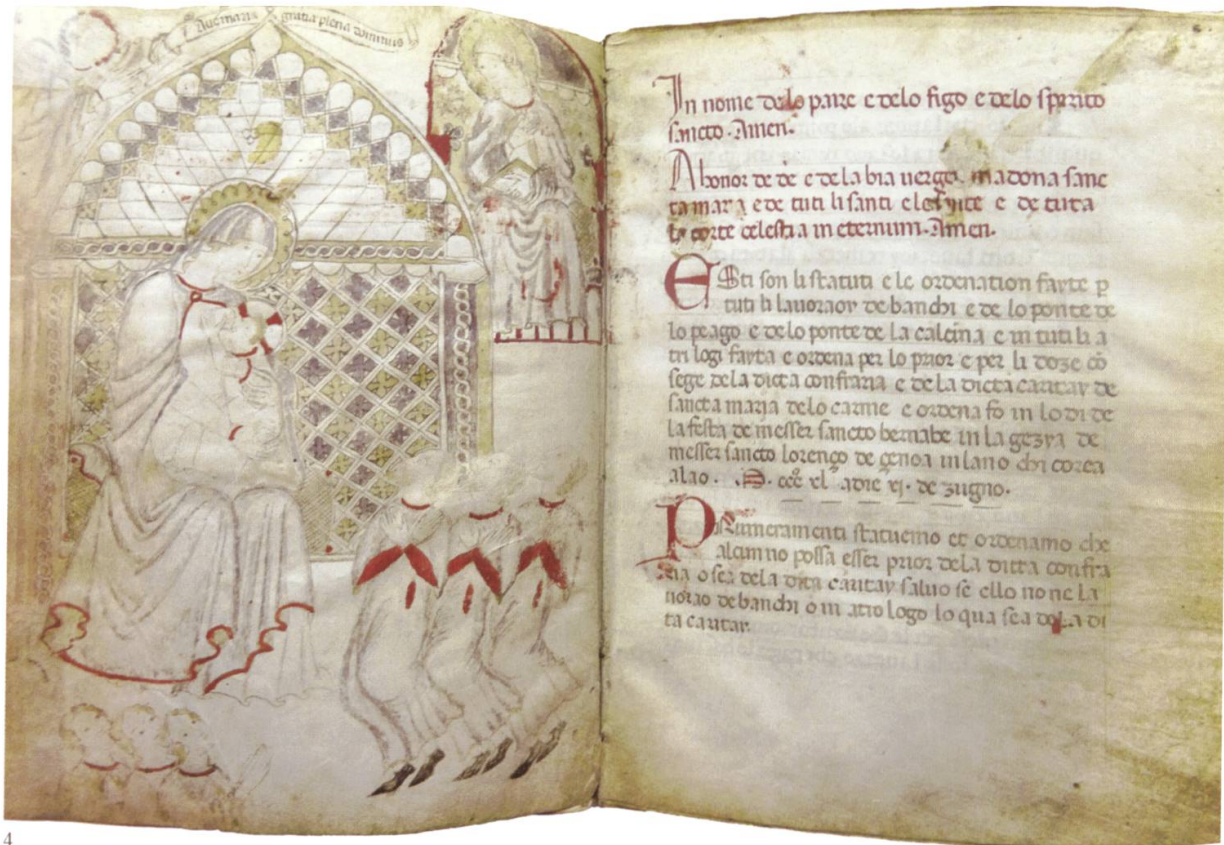 Aue maria gratia plena dominus
In nome delo paire e delo figo e delo spirito
sancto. Amen.
A honor de de e de la bia uergo madona sanc
ta maria e de tuti li santi e le sante e de tuta
la corte celestia in eternum. Amen.
Esti son li statuti e le ordenation fayte p
tuti li lauoraoy de banchi e de lo ponte de
lo peago e delo ponte de la calcina e in tuti li a
tri logi fayta e ordena per lo prior e per li doze co
sege dela dicta confraria e de la dicta caritay de
sancta maria delo carme e ordena fo in lo di de
la festa de messer sancto bernabe in la gezya de
messer sancto lorenço de genoa in lano chi corea
alao. M. ccc xl adie xj. de zugno.
Primeramenti statuemo et ordenamo che
alcun no possa esser prior de la dicta confra
ria o sea dela dita caritay saluo se ello no ne la
uorao de banchi o in atro logo lo qua sea de la di
ta caritay.
4